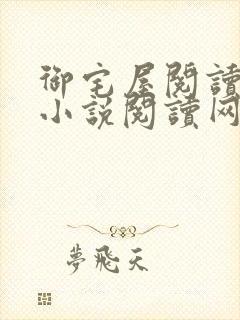 御宅屋閱讀
小說閱讀网
夢飛天